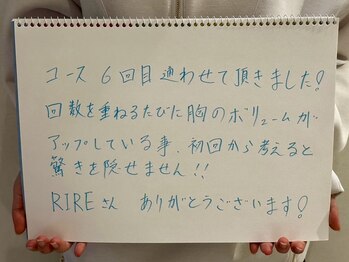 コース 6回目通わせて頂きました!
回数を重ねるたびに胸のボリュームが
アップしている事、初回から考えると
驚きを隠せません!!
RIREさん ありがとうございます!